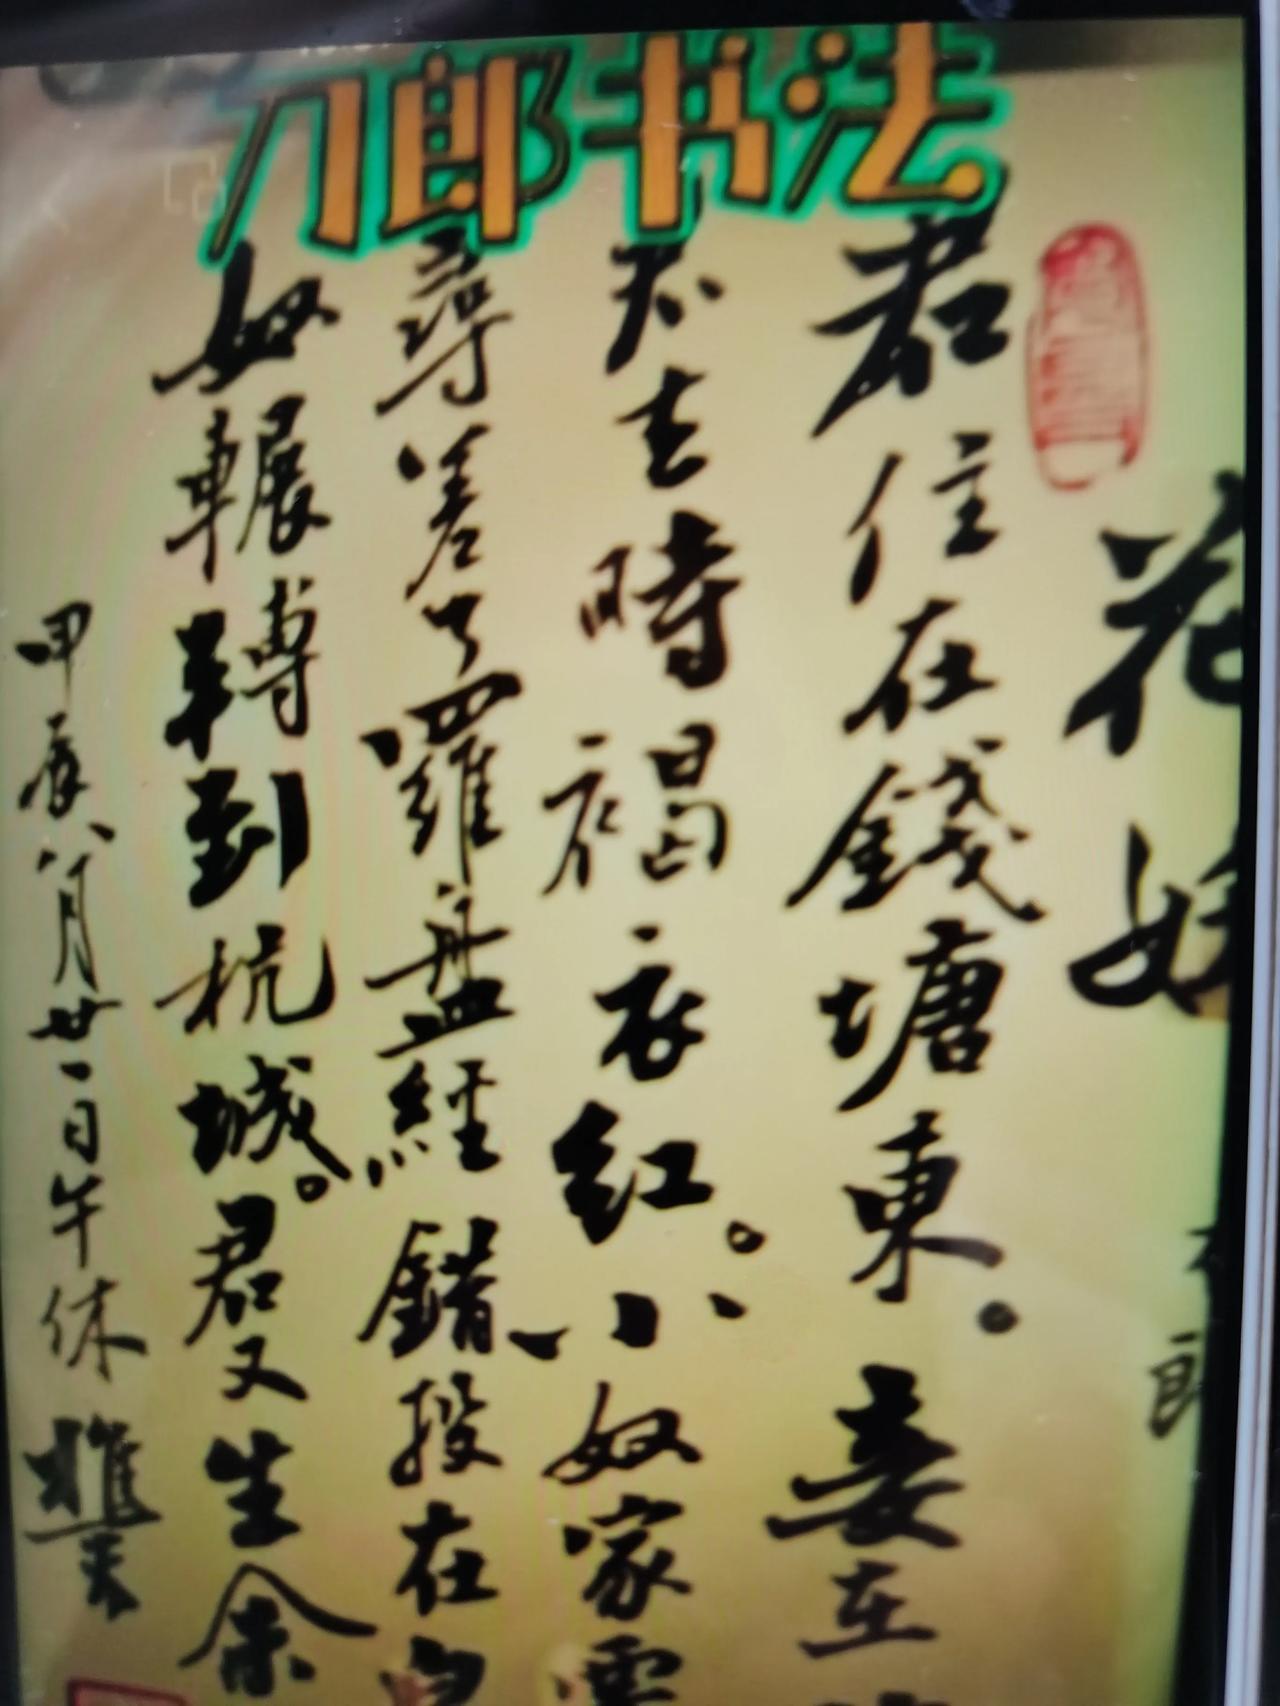 刀郎书法
花妖
君住在錢塘東。妾在
去時褐衣紅。小奴家
尋差了羅盤經錯投在
奴輾轉到杭城。君又生余
甲辰八月廿一日午休